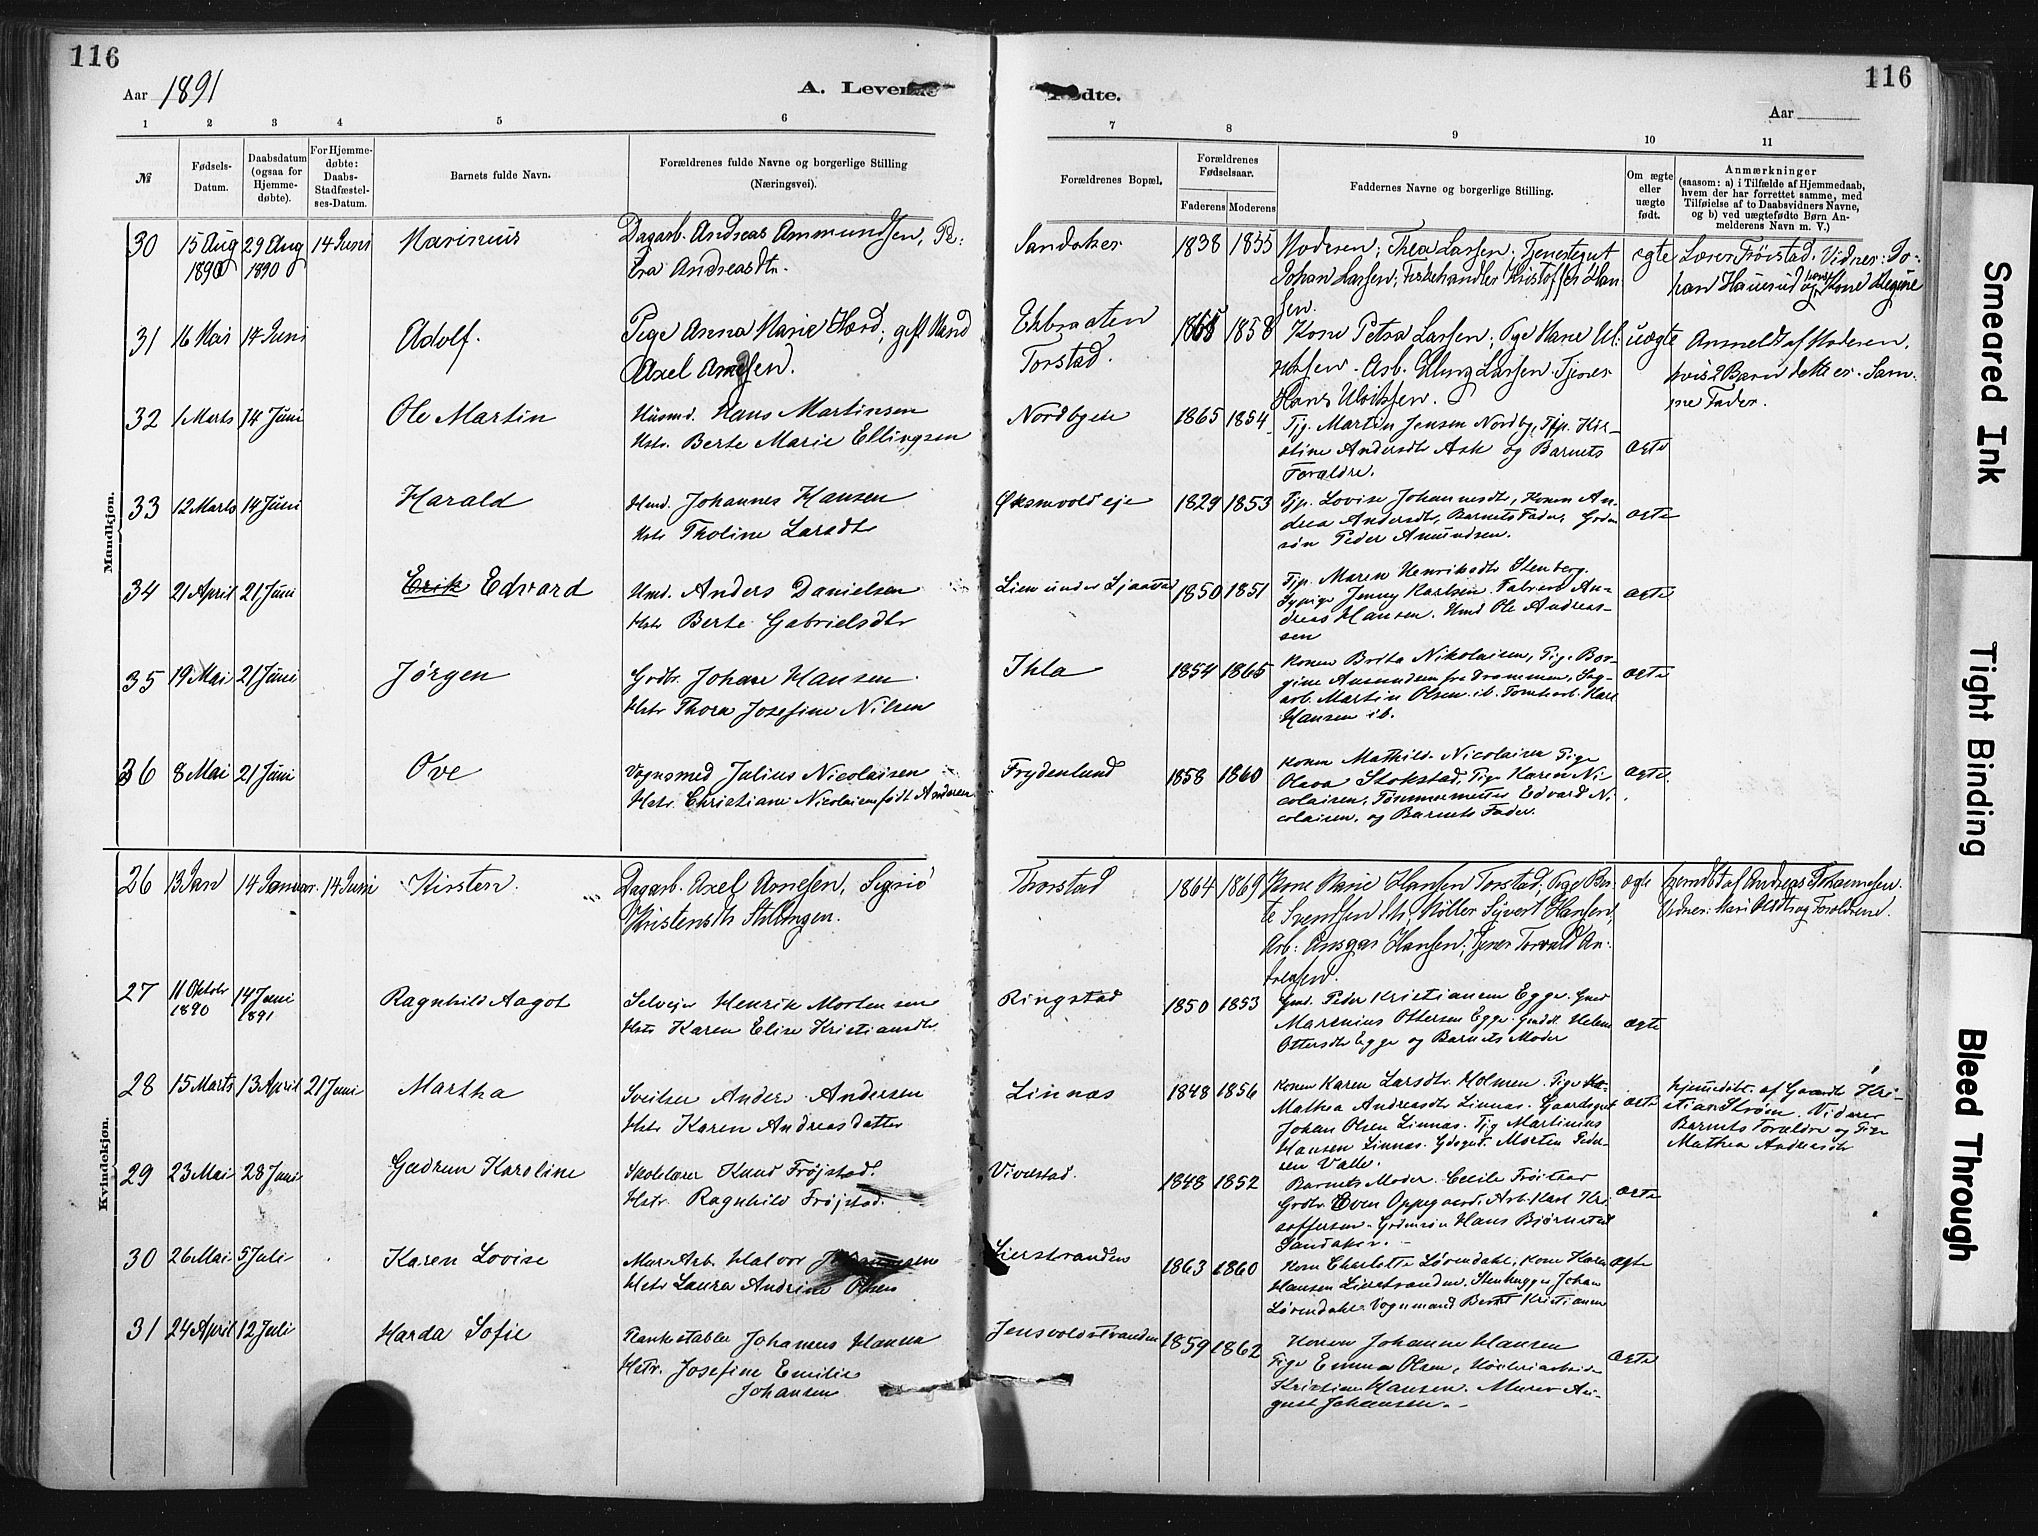 116
Aar 1891
A. Levende
Fødte.
116
Aar
1 2 3 4 5 6 7 8 9 10 11
№
Fødsels-
Datum.
Daabsdatum
(ogsaa for
Hjemme-
døbte).
For Hjemme-
døbte:
Daabs-
Stadfæstel-
ses-Datum.
Barnets fulde Navn.
Forældrenes fulde Navne og borgerlige Stilling
(Næringsvei).
Forældrenes Bopæl.
Forældrenes
Fødselsaar.
Faderens Moderens
Faddernes Navne og borgerlige Stilling.
Om ægte
eller
uægte
født.
Anmærkninger
(saasom: a) i Tilfælde af Hjemmedaab,
hvem der har forrettet samme, med
Tilføielse af to Daabsvidners Navne,
og b) ved uægtefødte Børn An-
melderens Navn m. V.)
Mandkjøn.
30
15 Aug
1890
29 Aug
1890
14 Juni
Marinius
Dagarb. Andreas Ammundsen,
Andreasdtr.
Sandaker
1838 1835
Moderen; Thea Larsen; Tjenestegut
Johan Larsen; Fiskehandler Kristoffer Han
sen.
ægte
Lærer Frøistad. Vidner: Jo-
han Hauerud og Kone
31
16 Mai
14 Juni
Adolf.
Pige Anna Marie Hærd; gift Mand
Axel Arnesen.
Ekbraaten
Torstad.
1865 1858
Kone Petra Larsen; Pige Marie Ul-
riksen. Arb. Elling Larsen. Tjener
Hans Ulriksen.
uægte
Anmeldt af Moderen,
hvis 2 Barn dette er. Sam-
me Fader.
32
1 Marts
14 Juni
Ole Martin
Husmd. Hans Martinsen
Hstr. Berte Marie Ellingsen
Nordbyeie
1865 1854
Tj. Martin Jensen Nordby, Tjp. Kir-
stine Andersdtr Ask og Barnets
Forældre.
ægte
33
12 Marts
14 Juni
Harald
Hmd. Johannes Hansen
Hstr Tholine Larsdtr
Øksnevold eje
1829 1853
Tjp. Lovise Johannesdtr, Konen An-
drea Andersdtr, Barnets Fader, Gdm
søn Peder Amundsen.
ægte
34
21 April
21 Juni
Erik Edvard
Hmd. Anders Danielsen
Hstr Berte Gabrielsdtr
Lien under Sjaastad
1850 1851
Tjp. Maren Henriksdtr Stenberg.
Sypige Jenny Karlsen. Fabrera An-
dreas Hansen. Hmd Ole Andreas-
sen
ægte
35
19 Mai
21 Juni
Jørgen
Gdbr. Johan Hansen.
Hstr Thora Josefine Nilsen
Ihla
1854 1865
Konen Brita Nikolaisen, Pige Bor-
gine Amundsen fra Drammen, Sag-
arb. Martin Olsen ib. Tomtearb. Karl
Hansen ib.
ægte
36
8 Mai
21 Juni
Ove
Vognsmed Julius Nicolaisen
Hstr. Christiane Nicolaisen født Andersen
Frydenlund
1858 1860
Konen Mathild. Nicolaisen Pige
Olava Stokstad, Pige Karen Ni-
colaisen, Tømmermester Edvard Ni-
colaisen, og Barnets Fader.
ægte.
Kvindekjøn.
26
13 Jan
14 Januar.
14 Juni
Kirsten.
Dagarb. Axel Arnesen, Signe
Kristensdtr Stillingen.
Torstad
1864 1869
Kone Marie Hansen Torstad; Pige Ber-
te Svensen ib, Møller Sivert Hansen,
Arb: Ansgar Hansen; Tjener Torvald An-
dreasen.
ægte
hjemdøbt af Andreas Johannesen.
Vidner: Mari Olsdtr og Forældrene.
27
11 Oktobr
1890
14 Juni
1891
Ragnhild Aagot
Selvejer Henrik Mortensen
Hstr Karen Elise Kristiansdtr
Ringstad
1850 1853
Gmd. Peder Kristiansen Egge. Gmd
Marenius Ottersen Egge. Gmdtr Helene
Ottersdtr Egge og Barnets Moder
ægte
28
15 Marts
13 April
21 Juni
Martha
Sveitser Anders Andersen
Hstr Karen Andreasdatter
Linnæs
1848 1856
Konen Karen Larsdtr. Holmen. Pige
Mathea Andreasdtr Linnæs. Gaardsgut
Johan Olsen Linnæs. Tjg Martinius
Hansen Linnæs. Gdsgut. Morten Peder-
sen Valle.
ægte
hjemdøbt. af Gaardbr Kri-
stian Strøm. Vidner
Barnets Forældre og Pige
Mathea Andreasdtr
29
23 Mai
28 Juni
Gudrun Karoline
Skolelærer Knud Frøjstad.
Hstr. Ragnhild Frøjstad.
Vivelstad.
1848 1852
Barnets Moder. Cecilie Frøistad
Gdbr. Even Oppegaard. Arb. Karl Kri-
stoffersen. Gdmsøn Hans Bjørnstad
Sandaker.
ægte
30
26 Mai
5 Juli
Karen Lovise
Mur Arb. Halvor Johannesen
Hstr Laura Andrine Olsen
Lierstranden
1863 1860
Kone Charlotte Løvendahl, Kone Karen
Hansen Lierstranden, Stenhugger Johan
Løvendahl. Vognmand Bernt Kristiansen
ægte
31
24 April
12 Juli
Harda Sofie
Plankestabler Johannes Hansen
Hstr. Josefine Emilie
Johansen
Jensvoldstranden
1859 1862
Konen Johanne Hansen
Pige Emma Olsen, Høvleriarbeider
Kristian Hansen. Murer Au-
gust Johansen.
ægte
Smeared Ink
Tight Binding
Bleed Through